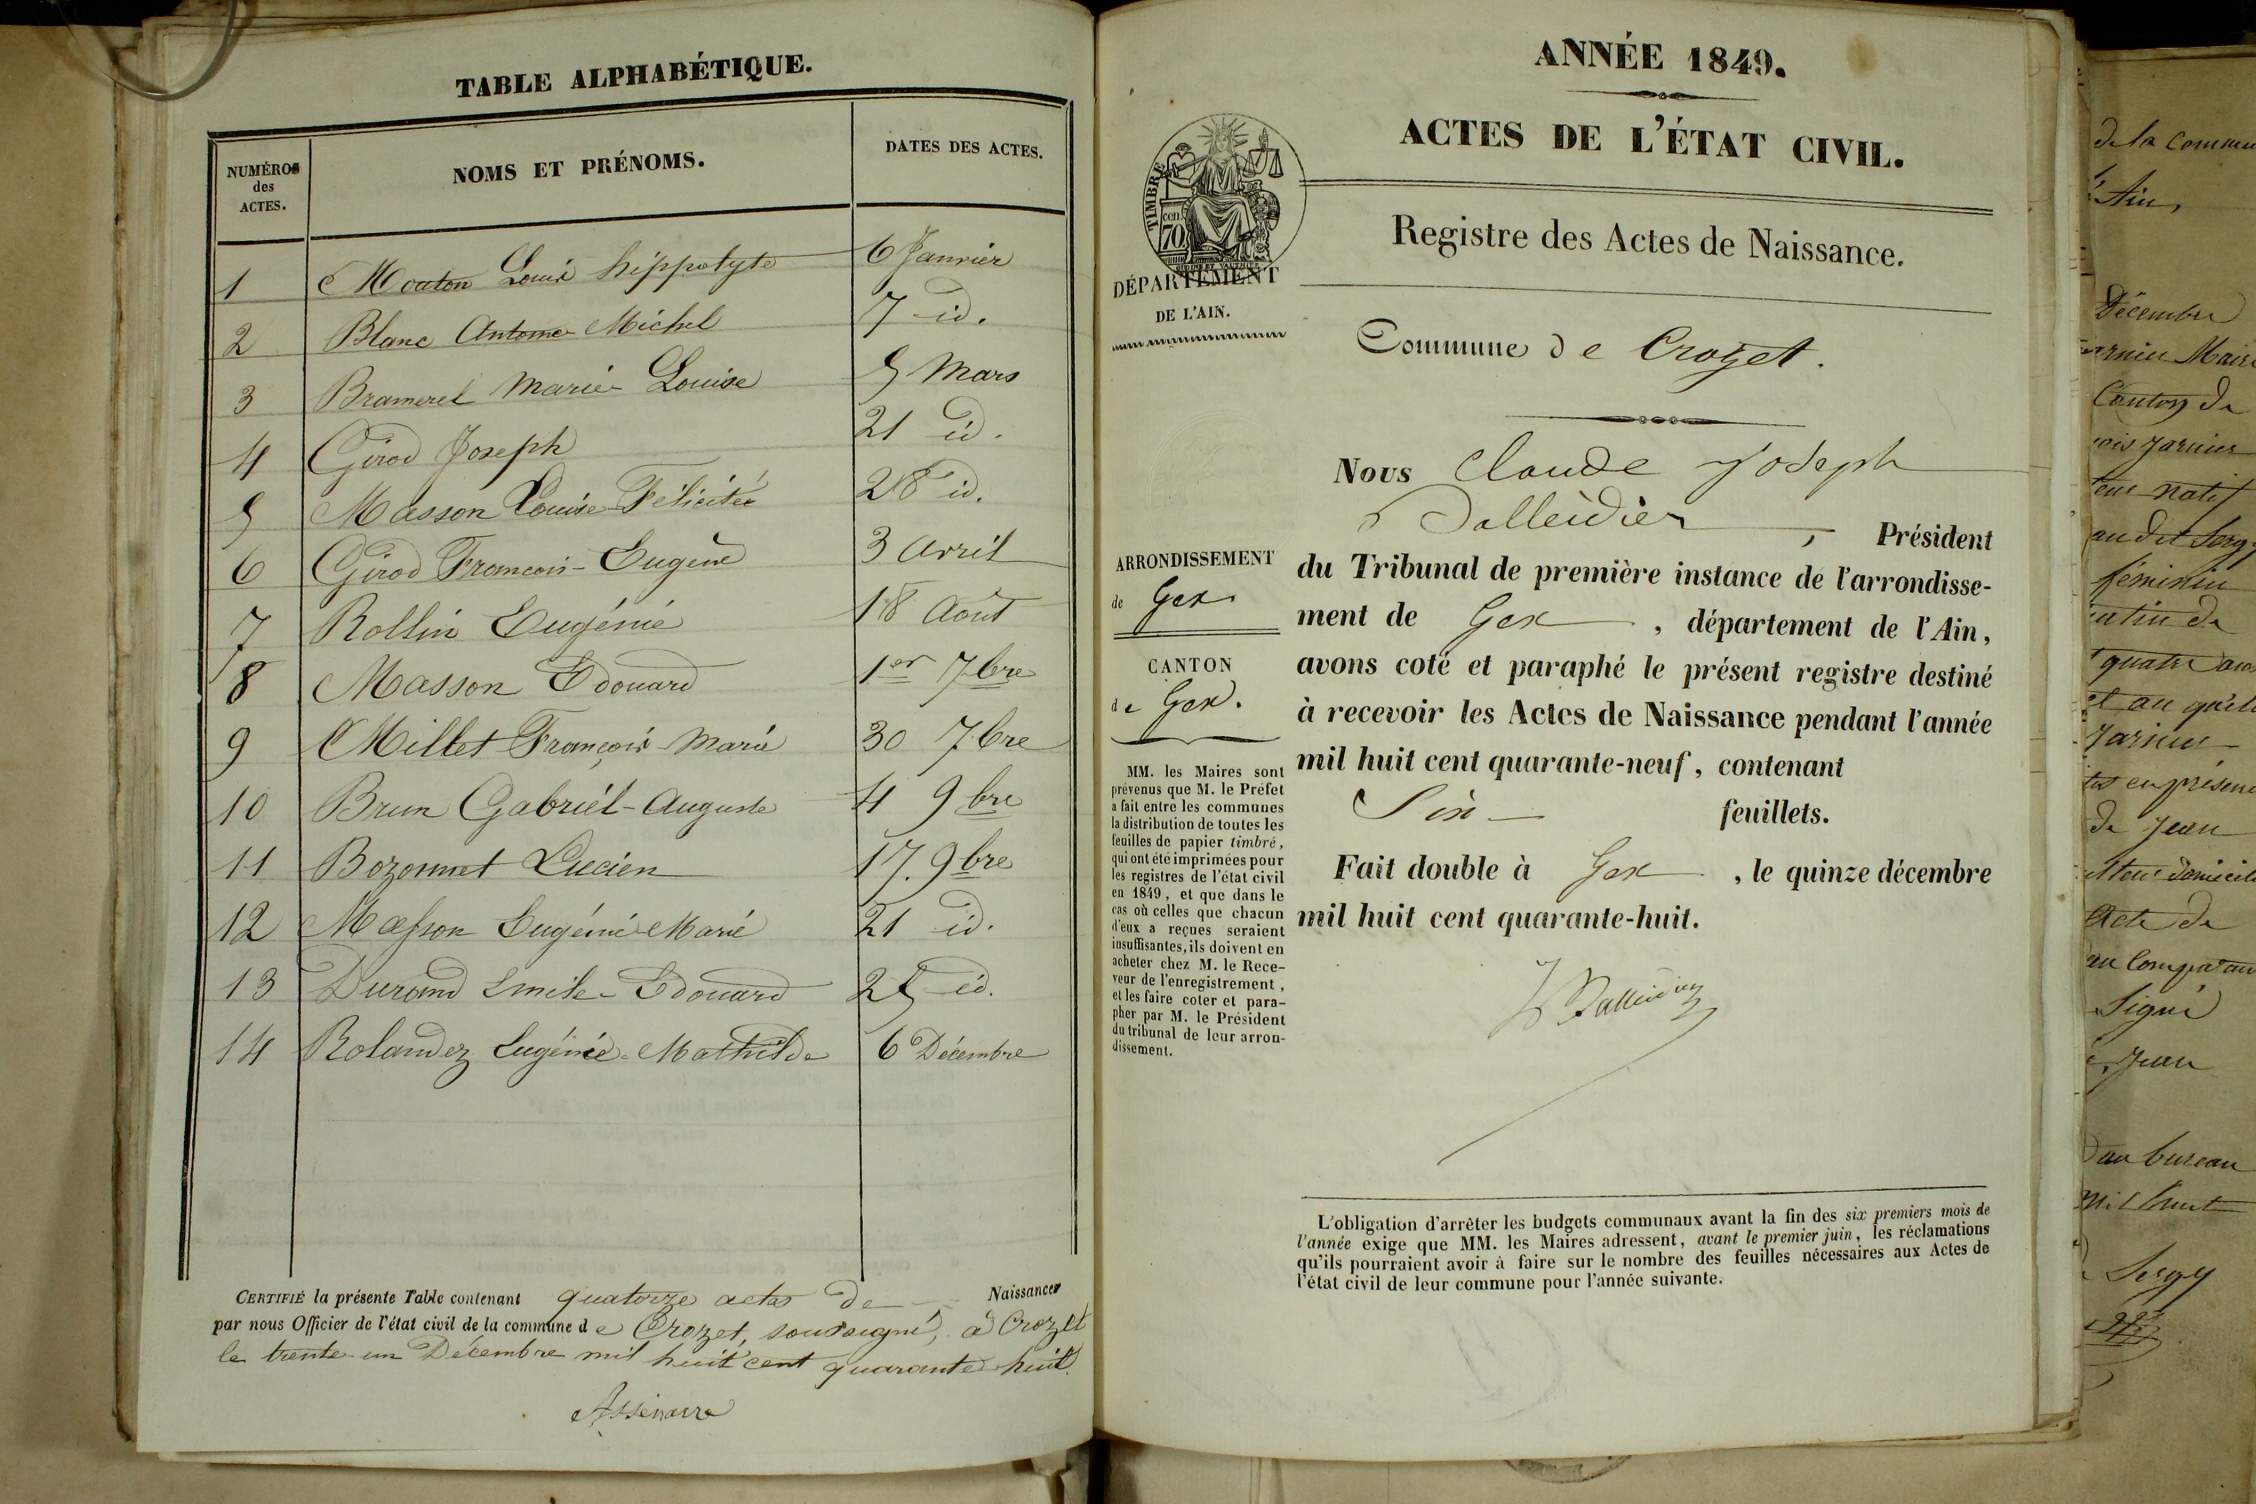 TABLE ALPHABÉTIQUE.
NUMÉROS des ACTES. NOMS ET PRÉNOMS. DATES DES ACTES.
1 Mouton Louis hippolyte 6 Janvier
2 Blanc Antome Michel 7 id.
3 Bramerel Marie Louise 5 Mars
4 Girod Joseph 21 id.
5 Masson Louise Félicitée 28 id.
6 Girod Francois-Eugène 3 Avril
7 Rollin Eugénie 18 Août
8 Masson Edouard 1er 7bre
9 Millet François Marie 30 7bre
10 Brun Gabriel-Auguste 4 9bre
11 Bozonnet Lucien 17. 9bre
12 Masson Eugénie Marie 21 id.
13 Durand Emile-Edouard 25 id.
14 Rolandez Eugénie-Mathilde 6 Décembre
CERTIFIÉ la présente Table contenant quatorze actes de Naissances
par nous Officier de l'état civil de la commune de Crozet, soussigné, à Crozet
le trente-un Décembre mil huit cent quarante huit.
ANNÉE 1849.
ACTES DE L'ÉTAT CIVIL.
TIMBRE
cen.
70
Registre des Actes de Naissance.
DÉPARTEMENT
DE L'AIN.
Commune de Crozet.
Nous Claude Joseph
Balleidier, Président
du Tribunal de première instance de l'arrondisse-
ment de Gex, département de l'Ain,
avons coté et paraphé le présent registre destiné
à recevoir les Actes de Naissance pendant l'année
mil huit cent quarante-neuf, contenant
Six feuillets.
Fait double à Gex, le quinze décembre
mil huit cent quarante-huit.
Balleidier
ARRONDISSEMENT
de Gex
CANTON
de Gex.
MM. les Maires sont
prévenus que M. le Préfet
a fait entre les communes
la distribution de toutes les
feuilles de papier timbré,
qui ont été imprimées pour
les registres de l'état civil
en 1849, et que dans le
cas où celles que chacun
d'eux a reçues seraient
insuffisantes, ils doivent en
acheter chez M. le Rece-
veur de l'enregistrement,
et les faire coter et para-
pher par M. le Président
du tribunal de leur arron-
dissement.
L'obligation d'arrêter les budgets communaux avant la fin des six premiers mois de
l'année exige que MM. les Maires adressent, avant le premier juin, les réclamations
qu'ils pourraient avoir à faire sur le nombre des feuilles nécessaires aux Actes de
l'état civil de leur commune pour l'année suivante.
de la commu
Ain,
Décembre
Maire
Canton de
natif
féminin
quatre ans
en présence
de Jean
Acte de
Signé
Jean
au bureau
Sergy